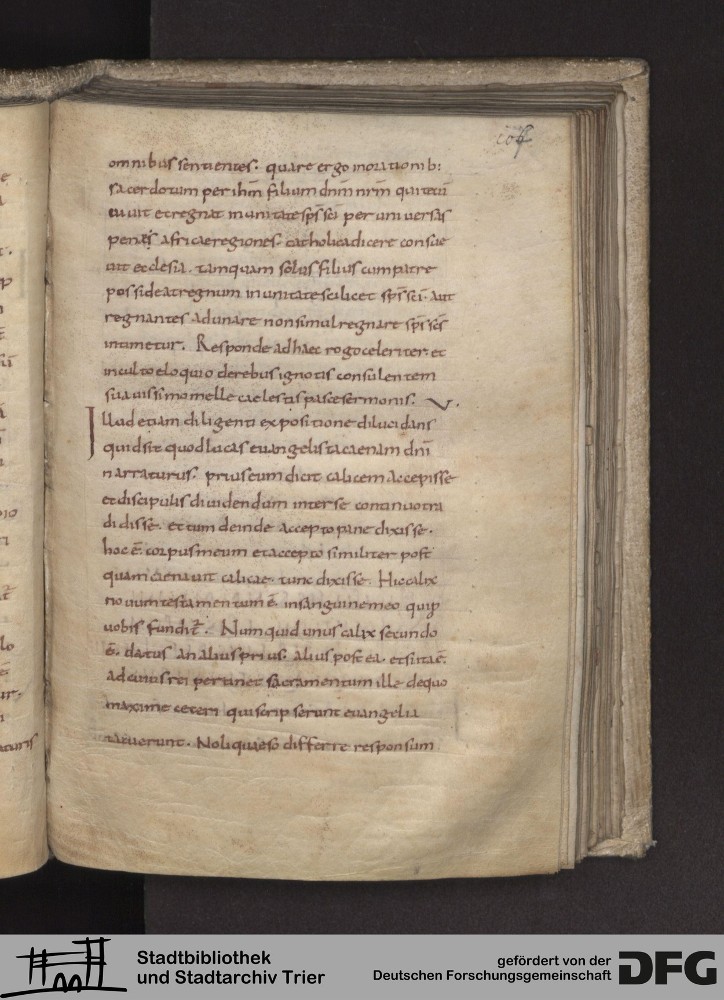 omnibus sentientes. quare ergo inorationib:
sacerdotum per ihm̄ filium dn̄m nr̄m qui tecū
uiuit et regnat in unitate sp̄s sc̄i per uniuersas
penes africae regiones. catholica dicere consue
uit ecclesia. tamquam solus filius cum patre
possideat regnum in unitate scilicet sp̄s sc̄i. aut
regnantes adunare non simul regnare sp̄s sc̄s
intimetur. Responde ad haec rogo celeriter et
inculto eloquio de rebus ignotis consulentem
suauissimo melle caelestis pasce sermonis. V.
Illud etiam diligenti expositione dilucidans
quid sit quod lucas euangelista caenam dn̄i
narraturus. prius eum dicit calicem accepisse
et discipulis diuidendum inter se continuo tra
didisse. et tum deinde accepto pane dixisse.
hoc ē corpus meum et accepto similiter post
quam caenauit calicae. tunc dixisse. Hic calix
nouum testamentum ē. in sanguine meo qui p
uobis fundit̄. Numquid unus calix secundo
ē. datus an alius prius. alius post ea. et si ita ē.
ad cuius rei pertinet sacramentum ille de quo
maxime ceteri qui scripserunt euangelia
tacuerunt. Noli quaeso differre responsum
Stadtbibliothek
und Stadtarchiv Trier
gefördert von der
Deutschen Forschungsgemeinschaft
DFG